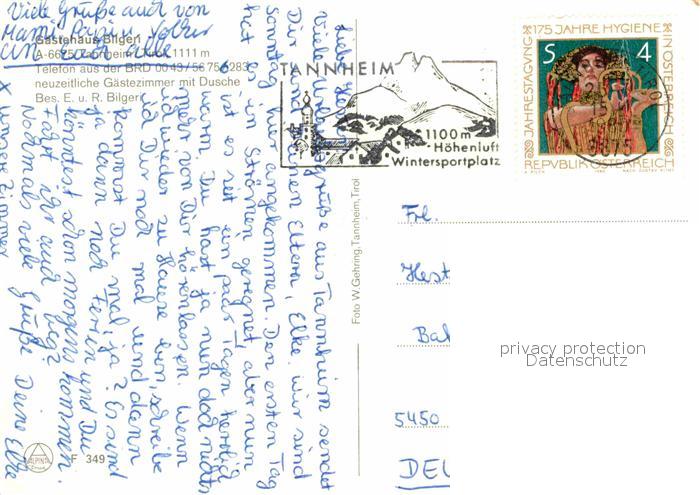 Viele Grüße auch von
Mami, Papi, Volker
Gästehaus Bilgeri
A-6675 Tannheim / Tirol 1111 m
Telefon aus der BRD 00 43/5675/6283
neuzeitliche Gästezimmer mit Dusche
Bes. E. u. R. Bilgeri
TANNHEIM
1100 m
Höhenluft
Wintersportplatz
JAHRESTAGUNG 175 JAHRE HYGIENE IN ÖSTERREICH
S 4
REPUBLIK ÖSTERREICH
Liebe
Viele Urlaubsgrüße aus Tannheim sendet
Dir und Deinen Eltern, Elke. Wir sind
Sonntag hier angekommen. Den ersten Tag
hat es in Strömen geregnet, aber nun
ist es seit ein paar Tagen herrlich
warm. Du hast ja nun doch nichts
mehr von Dir hören lassen. Wenn
ich wieder zu Hause bin, schreibe
ich Dir noch mal und dann
kommst Du mal, ja? Es sind
ja dann noch Ferien und Du
könntest schon morgens kommen.
Nochmals viele Grüße Deine Elke
x unser Zimmer
Foto W. Gehring, Tannheim, Tirol
ALPINA
F 349
Frl.
Hest
Bah
5450
DEU
privacy protection
Datenschutz